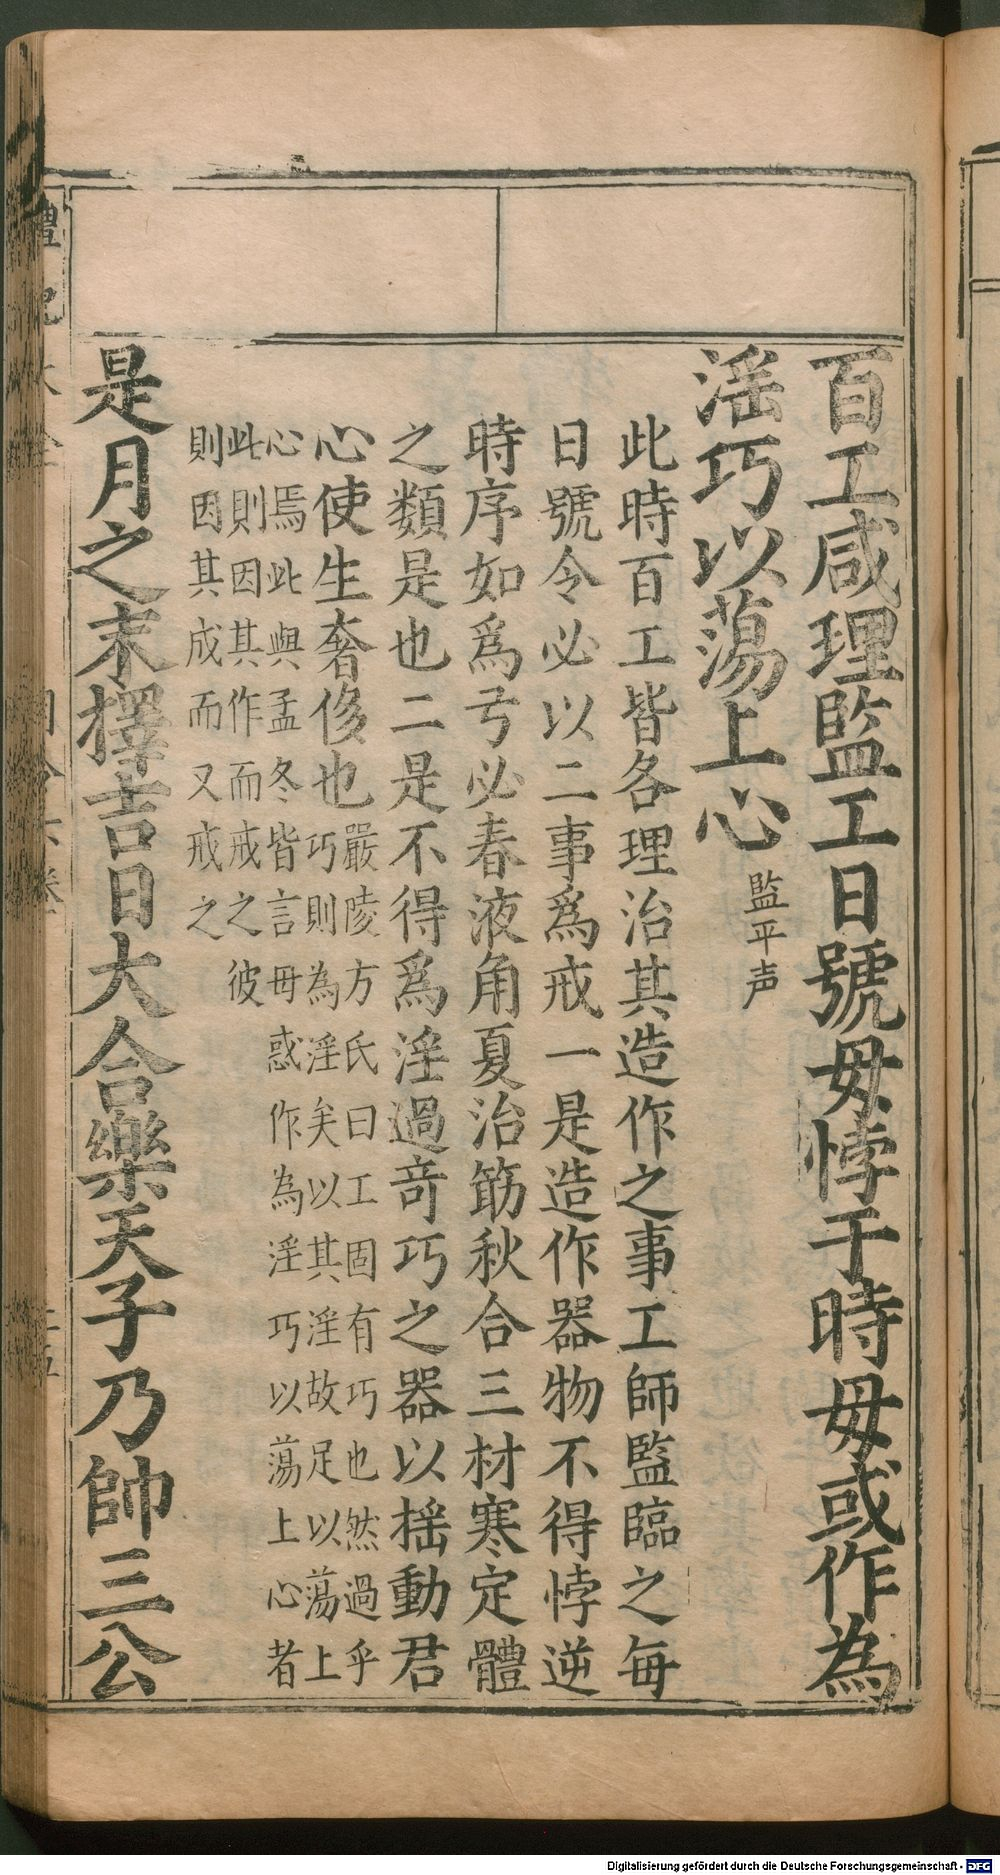 百工咸理監工日號毋悖于時毋或作為
淫巧以蕩上心監平声
此時百工皆各理治其造作之事工師監臨之每
日號令必以二事爲戒一是造作器物不得悖逆
時序如爲弓必春液角夏治筋秋合三材寒定體
之類是也二是不得爲淫過竒巧之器以揺動君
心使生奢侈也嚴陵方氏曰工固有巧也然過乎
巧則為淫矣以其淫故足以蕩上
心焉此與孟冬皆言毋惑作為淫巧以蕩上心者
此則因其作而戒之彼
則因其成而又戒之
是月之末擇吉日大合樂天子乃帥三公
Digitalisierung gefördert durch die Deutsche Forschungsgemeinschaft - DFG